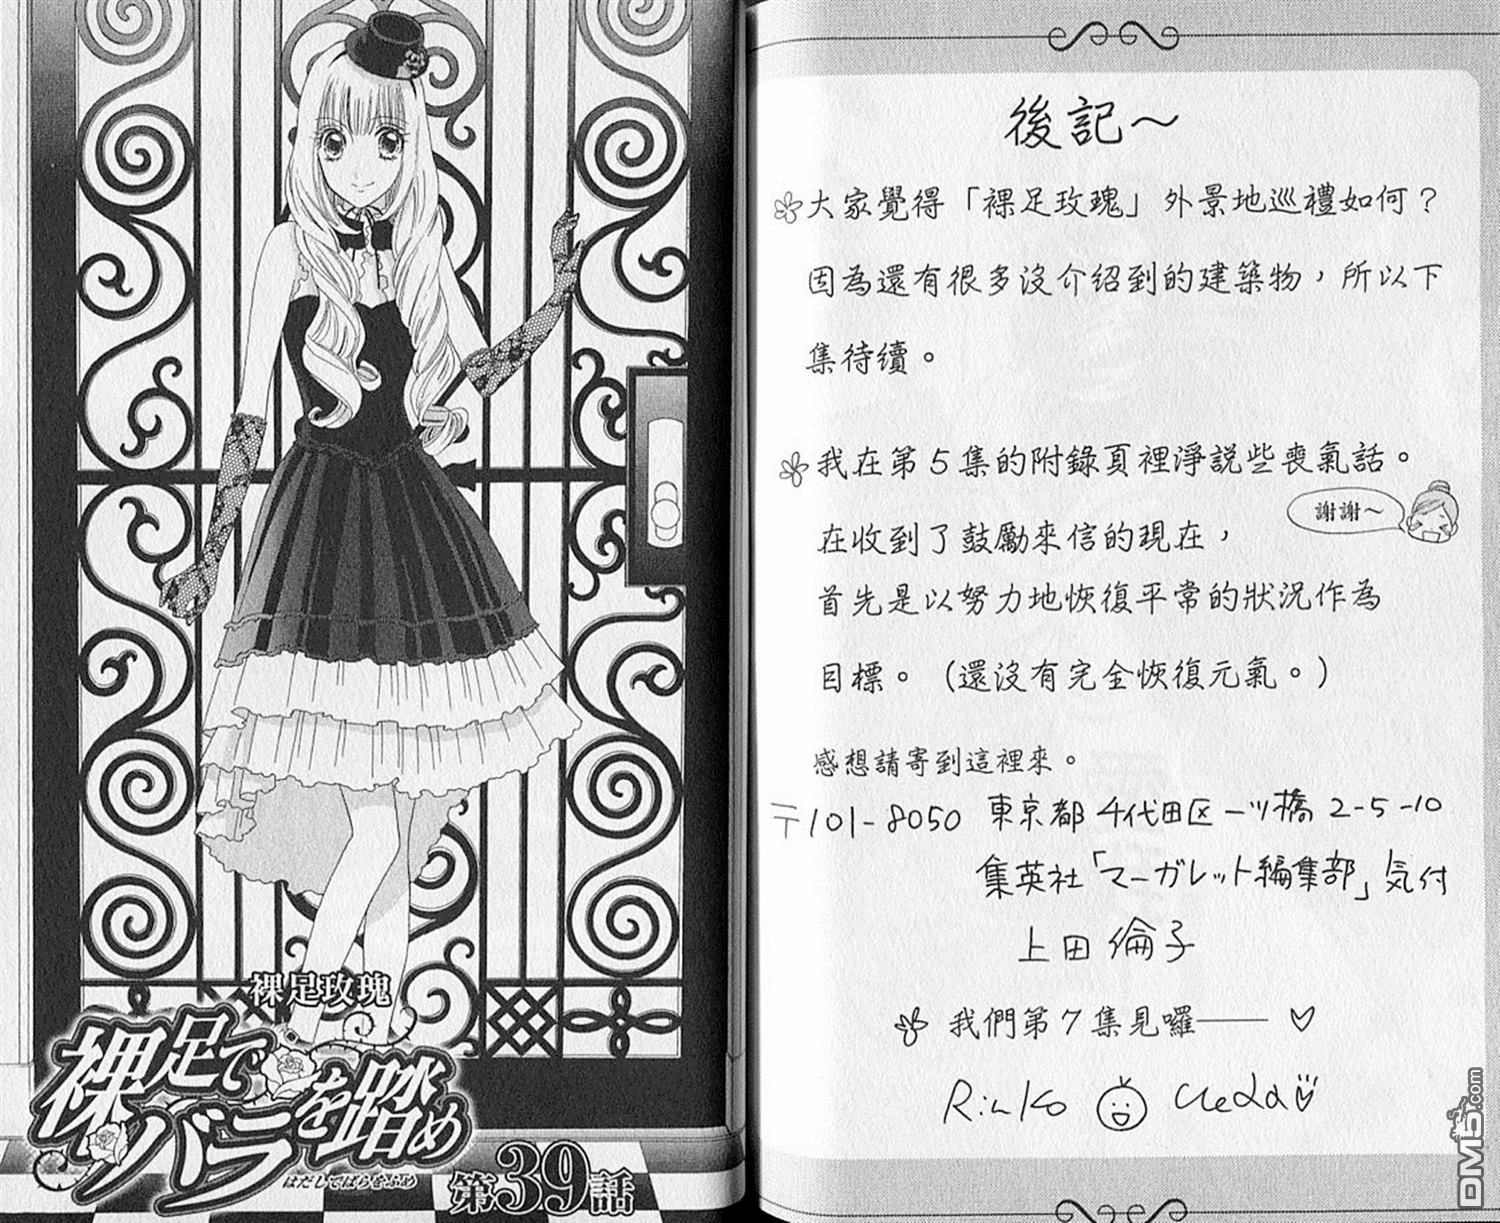 後記～
大家覺得「裸足玫瑰」外景地巡禮如何？
因為還有很多沒介紹到的建築物，所以下
集待續。
我在第5集的附錄頁裡淨說些喪氣話。
謝謝～
在收到了鼓勵來信的現在，
首先是以努力地恢復平常的狀況作為
目標。（還沒有完全恢復元氣。）
感想請寄到這裡來。
〒101-8050 東京都千代田区一ツ橋2-5-10
集英社「マーガレット編集部」気付
上田倫子
我們第7集見囉—— ♡
Rinko Ueda
裸足玫瑰
裸足で
バラを踏め
はだしでばらをふめ
第39話
DM5.com